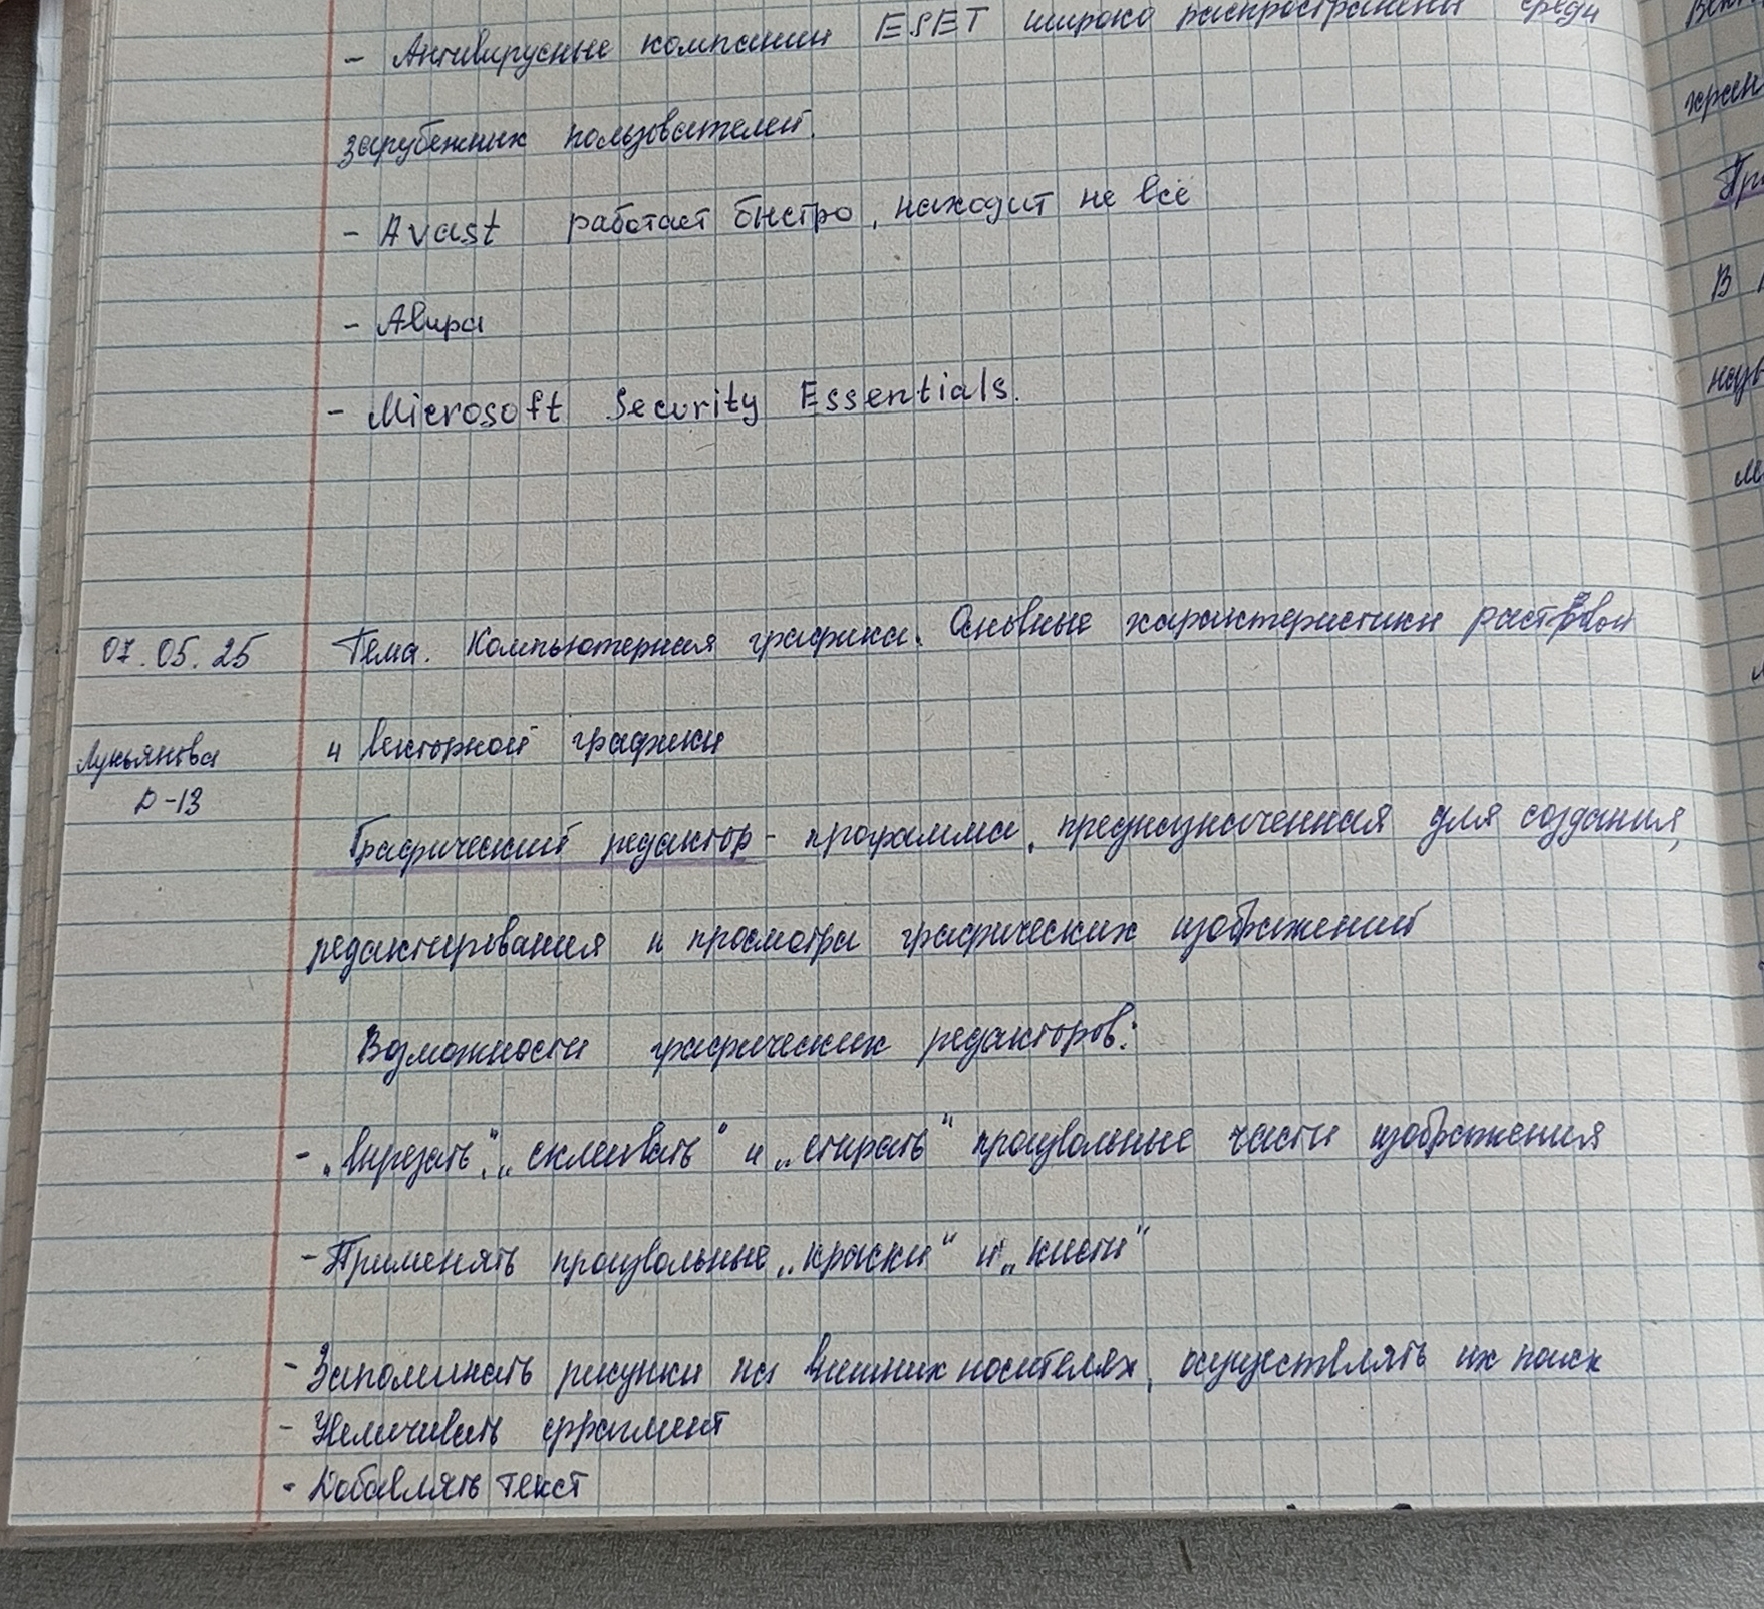 - Антивирусные компании ESET широко распространены среди
зарубежних пользователей.
- Avast работает быстро, находит не всё
- Авира
- Microsoft Security Essentials.
07.05.25 Тема. Компьютерная графика. Основные характеристики растровой
и векторной графики
Лукьянова
D-13
Графический редактор - программа, предназначенная для создания,
редактирования и просмотра графических изображений
Возможности графических редакторов:
- „вырезать", „склеивать" и „стирать" произвольные части изображения
- Применять произвольные „краски" и „кисти"
- Запоминать рисунки на внешних носителях, осуществлять их поиск
- Увеличивать фрагмент
- Добавлять текст
хран
В